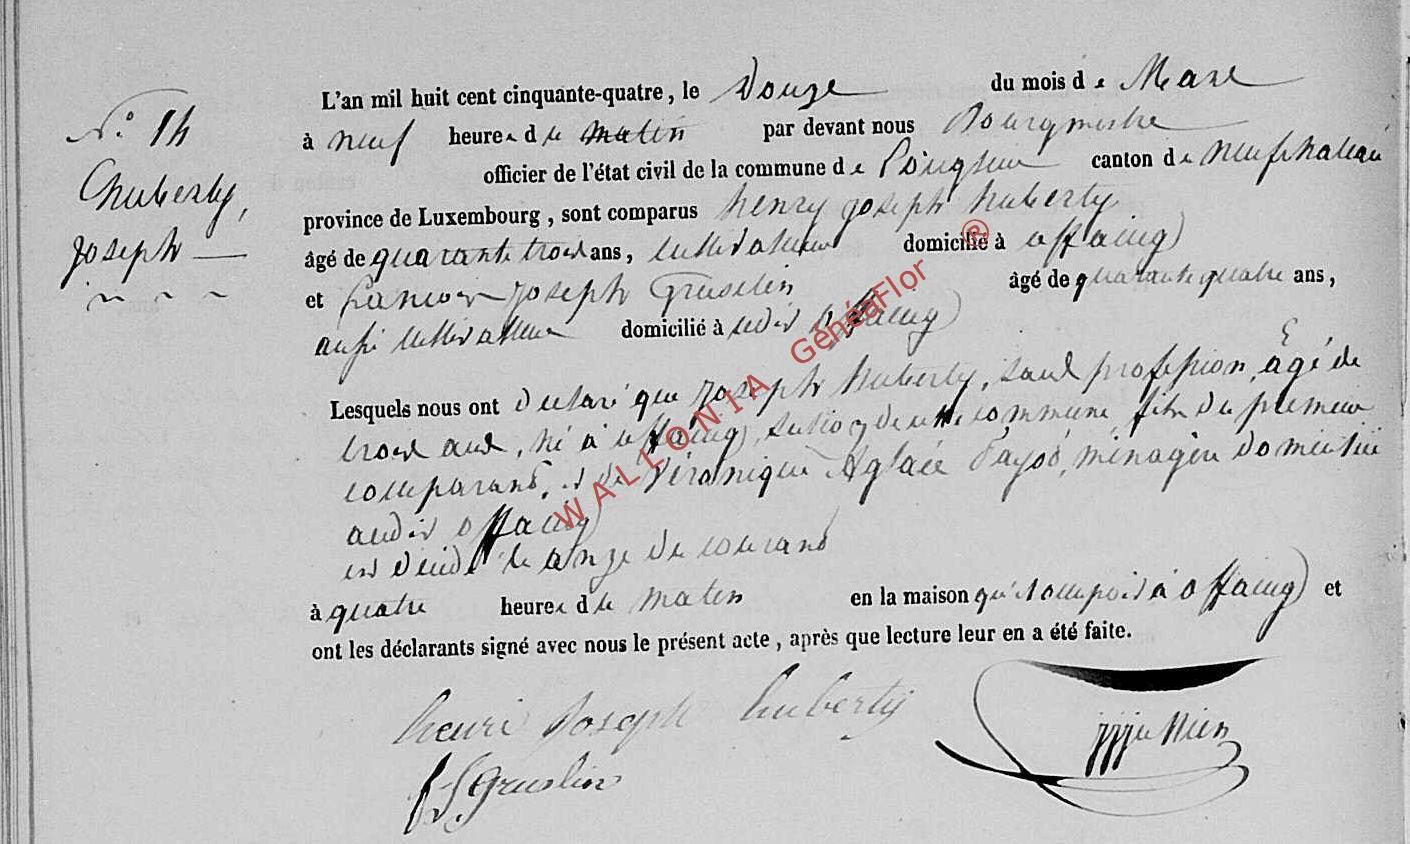 N.° 14
Huberty,
Joseph
L'an mil huit cent cinquante-quatre, le Douze du mois de Mars
à neuf heures du matin par devant nous Bourgmestre
officier de l'état civil de la commune de canton de neufchateau
province de Luxembourg, sont comparus henry joseph huberty
âgé de quarante trois ans, cultivateur domicilié à offaing
et joseph Gruslin âgé de quarante quatre ans,
aussi cultivateur domicilié à audit offaing
Lesquels nous ont declaré que joseph huberty, sans profession, âgé de
trois ans, né à offaing, section de cette commune fils du premier
comparant, et de Véronique Aglaée Payot, ménagère domiciliée
audit offaing
est décédé le onze du courant
à quatre heures du matin en la maison qu'il occupoit à offaing et
ont les déclarants signé avec nous le présent acte, après que lecture leur en a été faite.
henri joseph huberty
f J Gruslin
WALLONIA GénéaFlor ®